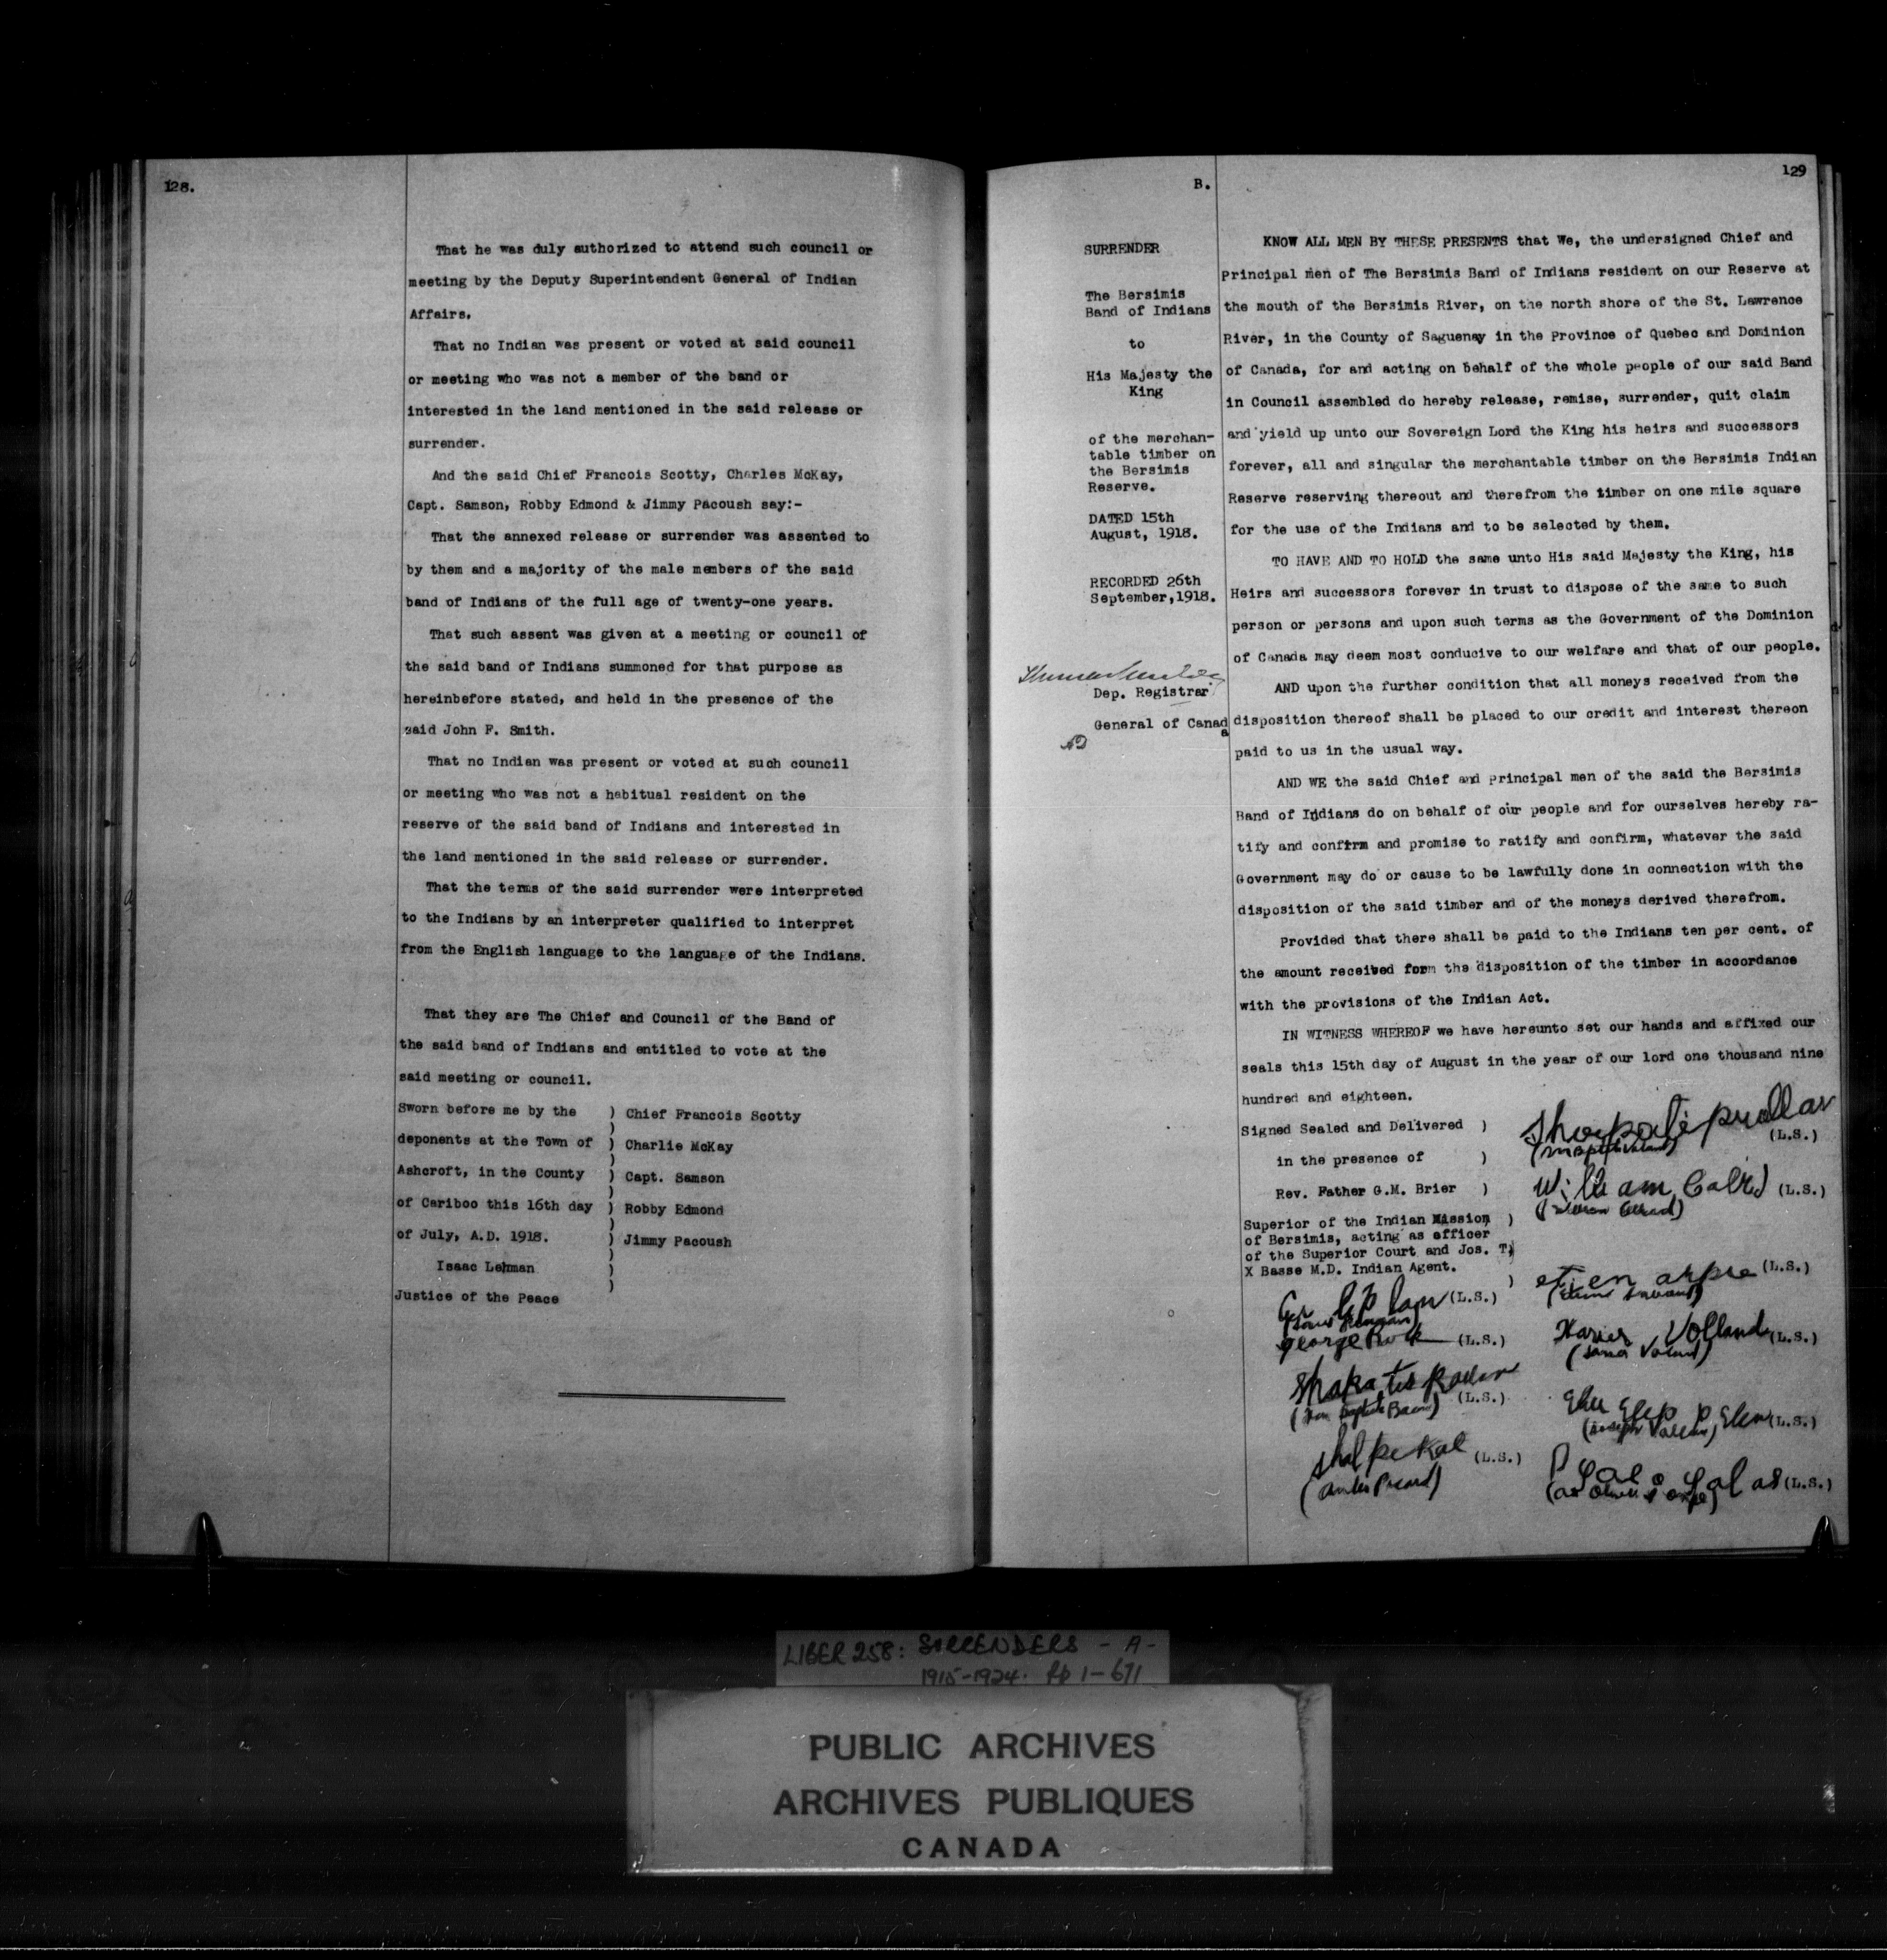 128.
That he was duly authorized to attend such council or
meeting by the Deputy Superintendent General of Indian
Affairs.
That no Indian was present or voted at said council
or meeting who was not a member of the band or
interested in the land mentioned in the said release or
surrender.
And the said Chief Francois Scotty, Charles McKay,
Capt. Samson, Robby Edmond & Jimmy Pacoush say:-
That the annexed release or surrender was assented to
by them and a majority of the male members of the said
band of Indians of the full age of twenty-one years.
That such assent was given at a meeting or council of
the said band of Indians summoned for that purpose as
hereinbefore stated, and held in the presence of the
said John F. Smith.
That no Indian was present or voted at such council
or meeting who was not a habitual resident on the
reserve of the said band of Indians and interested in
the land mentioned in the said release or surrender.
That the terms of the said surrender were interpreted
to the Indians by an interpreter qualified to interpret
from the English language to the language of the Indians.
That they are The Chief and Council of the Band of
the said band of Indians and entitled to vote at the
said meeting or council.
Sworn before me by the ) Chief Francois Scotty
deponents at the Town of ) Charlie McKay
Ashcroft, in the County ) Capt. Samson
of Cariboo this 16th day ) Robby Edmond
of July, A.D. 1918. ) Jimmy Pacoush
Isaac Lehman )
Justice of the Peace
B.
129
SURRENDER
The Bersimis
Band of Indians
to
His Majesty the
King
of the merchan-
table timber on
the Bersimis
Reserve.
DATED 15th
August, 1918.
RECORDED 26th
September,1918.
Dep. Registrar
General of Canada
KNOW ALL MEN BY THESE PRESENTS that We, the undersigned Chief and
Principal men of The Bersimis Band of Indians resident on our Reserve at
the mouth of the Bersimis River, on the north shore of the St. Lawrence
River, in the County of Saguenay in the Province of Quebec and Dominion
of Canada, for and acting on behalf of the whole people of our said Band
in Council assembled do hereby release, remise, surrender, quit claim
and yield up unto our Sovereign Lord the King his heirs and successors
forever, all and singular the merchantable timber on the Bersimis Indian
Reserve reserving thereout and therefrom the timber on one mile square
for the use of the Indians and to be selected by them.
TO HAVE AND TO HOLD the same unto His said Majesty the King, his
Heirs and successors forever in trust to dispose of the same to such
person or persons and upon such terms as the Government of the Dominion
of Canada may deem most conducive to our welfare and that of our people.
AND upon the further condition that all moneys received from the
disposition thereof shall be placed to our credit and interest thereon
paid to us in the usual way.
AND WE the said Chief and Principal men of the said the Bersimis
Band of Indians do on behalf of our people and for ourselves hereby ra-
tify and confirm and promise to ratify and confirm, whatever the said
Government may do or cause to be lawfully done in connection with the
disposition of the said timber and of the moneys derived therefrom.
Provided that there shall be paid to the Indians ten per cent. of
the amount received form the disposition of the timber in accordance
with the provisions of the Indian Act.
IN WITNESS WHEREOF we have hereunto set our hands and affixed our
seals this 15th day of August in the year of our lord one thousand nine
hundred and eighteen.
Signed Sealed and Delivered )
(L.S.)
in the presence of )
Rev. Father G.M. Brier )
William (L.S.)
Superior of the Indian Mission )
of Bersimis, acting as officer
of the Superior Court and Jos. T.
X Basse M.D. Indian Agent.
) (L.S.)
(L.S.)
George (L.S.)
Xavier Volland (L.S.)
(L.S.)
(L.S.)
(L.S.)
(L.S.)
LIBER 258: SURRENDERS - A -
1915-1924. pp 1-671
PUBLIC ARCHIVES
ARCHIVES PUBLIQUES
CANADA